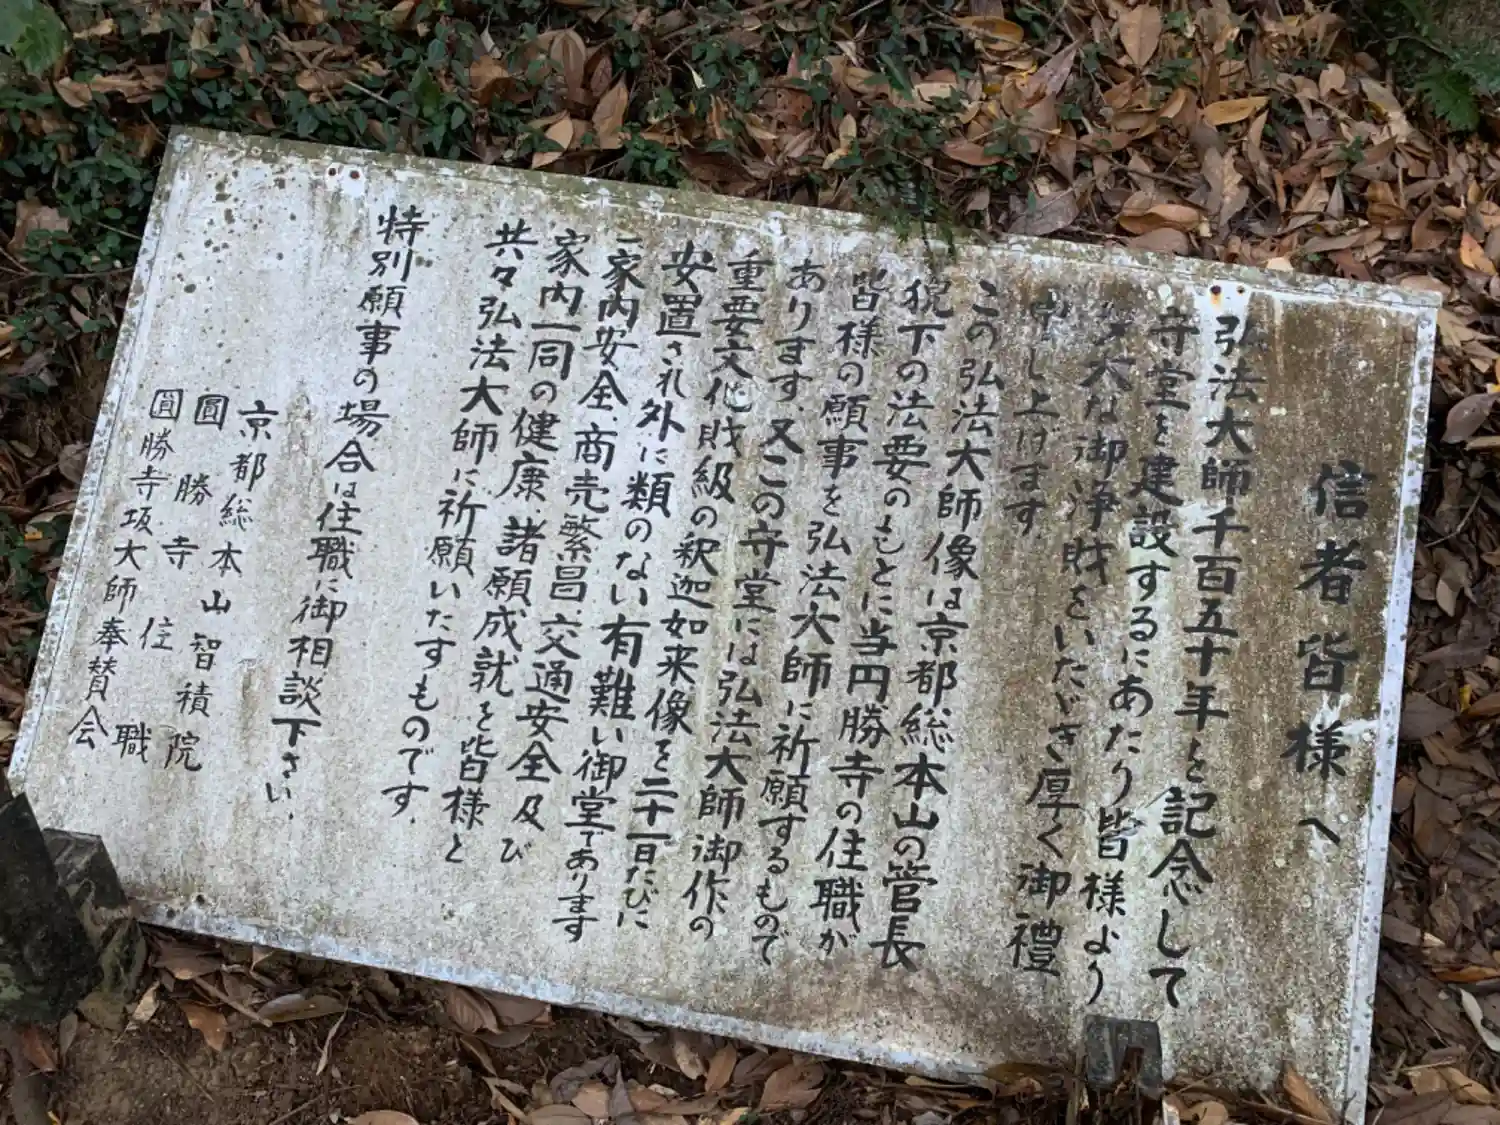 信者皆様へ
弘法大師千百五十年を記念して
守堂を建設するにあたり皆様より
多大な御浄財をいたゞき厚く御禮
申し上げます
この弘法大師像は京都総本山の管長
猊下の法要のもとに当円勝寺の住職が
皆様の願事を弘法大師に祈願するもので
あります。又この守堂には弘法大師御作の
重要文化財級の釈迦如来像を二十一日たびに
安置され外に類のない有難い御堂であります
一家内安全、商売繁昌、交通安全及び
家内一同の健康、諸願成就を皆様と
共々弘法大師に祈願いたすものです。
特別願事の場合は住職に御相談下さい。
京都総本山智積院
圓勝寺住職
圓勝寺坂大師奉賛会